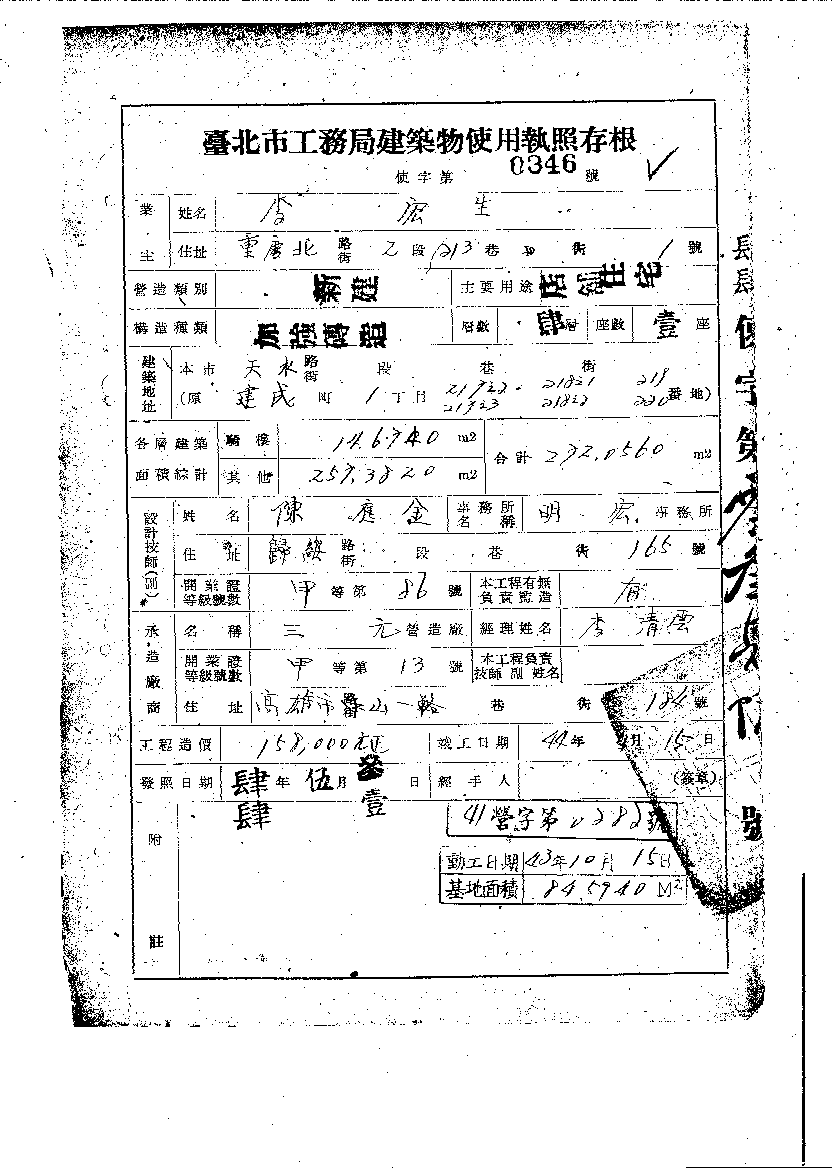 臺北市工務局建築物使用執照存根
使字第 0346 號
業主 姓名 李宏生
住址 重慶北路街 2 段 213 巷 街 1 號
營造類別 新建 主要用途 店舖住宅
構造種類 加強磚造 層數 肆層 座數 壹座
建築地址 本市 天水路街 段 巷 街
(原 建成町 1 丁目 21922 21821 219
21923 21822 220 番地)
各層建築面積綜計 騎樓 m2 合計 292.0560 m2
其他 m2
設計技師(副) 姓名 陳應金 事務所名稱 明宏事務所
住址 歸綏路街 段 巷 街 165 號
開業證等級號數 甲等第 86 號 本工程有無負責監造 有
承造廠商 名稱 三元營造廠 經理姓名 李清雲
開業證等級號數 甲等第 13 號 本工程負責技師副姓名
住址 高雄市 路街 巷 街 184 號
工程造價 158,000 元 竣工日期 44年 月 15日
發照日期 肆肆年 伍月 日 經手人 (簽章)
附註
營字第 號
動工日期 43年10月15日
基地面積 84.5940 M²
肆肆使字第 號